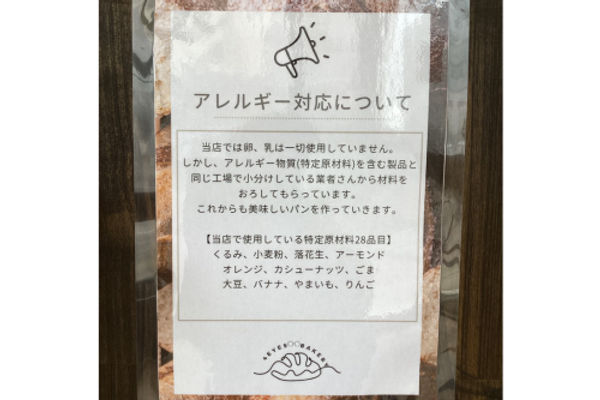 アレルギー対応について
当店では卵、乳は一切使用していません。
しかし、アレルギー物質(特定原材料)を含む製品と
同じ工場で小分けしている業者さんから材料を
おろしてもらっています。
これからも美味しいパンを作っていきます。
【当店で使用している特定原材料28品目】
くるみ、小麦粉、落花生、アーモンド
オレンジ、カシューナッツ、ごま
大豆、バナナ、やまいも、りんご
4EYES BAKERY